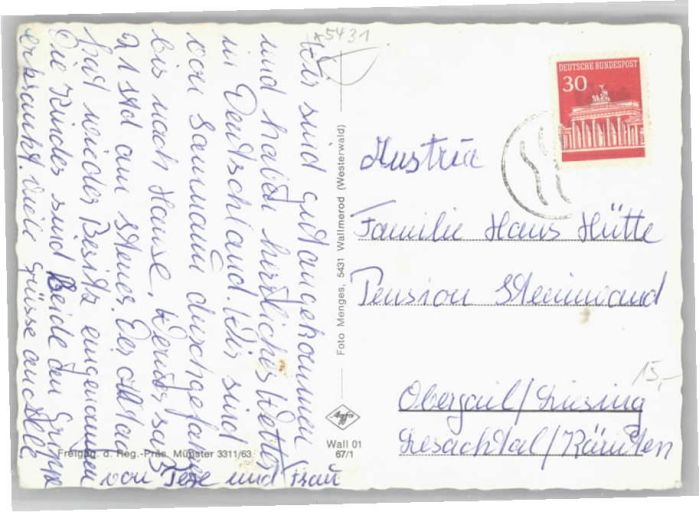 Wir sind gut angekommen
und haben herrliches Wetter
in Deutschland. Wir sind
von Samnaun durchgefahren
bis nach Hause. Werner saß
21 Std am Steuer. Der Alltag
hat wieder Besitz eingenommen
Die Kinder sind Beide an Grippe
erkrankt. Viele Grüsse an Alle
von Fese und Frau
*5431
DEUTSCHE BUNDESPOST
30
Austria
Familie Hans Hütte
Pension Steinwand
15,-
Obergail/Liesing
Lesachtal/Kärnten
Foto Menges, 5431 Wallmerod (Westerwald)
Agfa
Wall 01
67/1
Freigeg. d. Reg.-Präs. Münster 3311/63